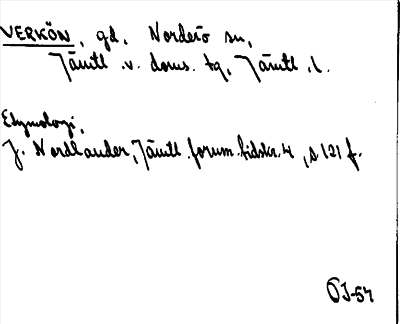 VERKÖN, gd, Norderö sn,
Jämtl. v. doms. tg, Jämtl. l.
Etymologi,
J. Nordlander, Jämtl. fornm. tidskr. 4, s 121 f.
ÖJ-54